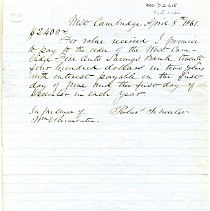 West Cambridge April 8th 1861.
$2400.00
For value received I promise
to pay to the order of the West Cam-
bridge Five Cents Savings Bank twenty
four hundred dollars in two years
with interest payable on the first
day of June and the first day of
December in each year.
In presence of
Robert Schouler